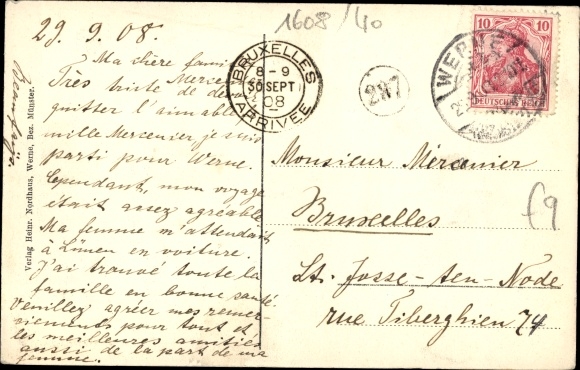 1608/40
29. 9. 08.
Ma chère fami-
Mercenier
Très triste de de
quitter l'aimable
mille Mercenier je suis
parti pour Werne.
Cependant, mon voyage
était assez agréable
Ma femme m'attendait
à Lünen en voiture.
J'ai trouvé toute la
famille en bonne santé.
Veuillez agréer mes remer-
ciements pour tout et
les meilleures amitiés
aussi de la part de ma
femme.
Verlag Heinr. Nordhaus, Werne, Bez. Münster.
BRUXELLES
8-9
30 SEPT
08
ARRIVÉE
WERNE
10 10
DEUTSCHES REICH
Monsieur Mércenier
Bruxelles
St. Josse-ten-Node
rue Tiberghien 74
f9